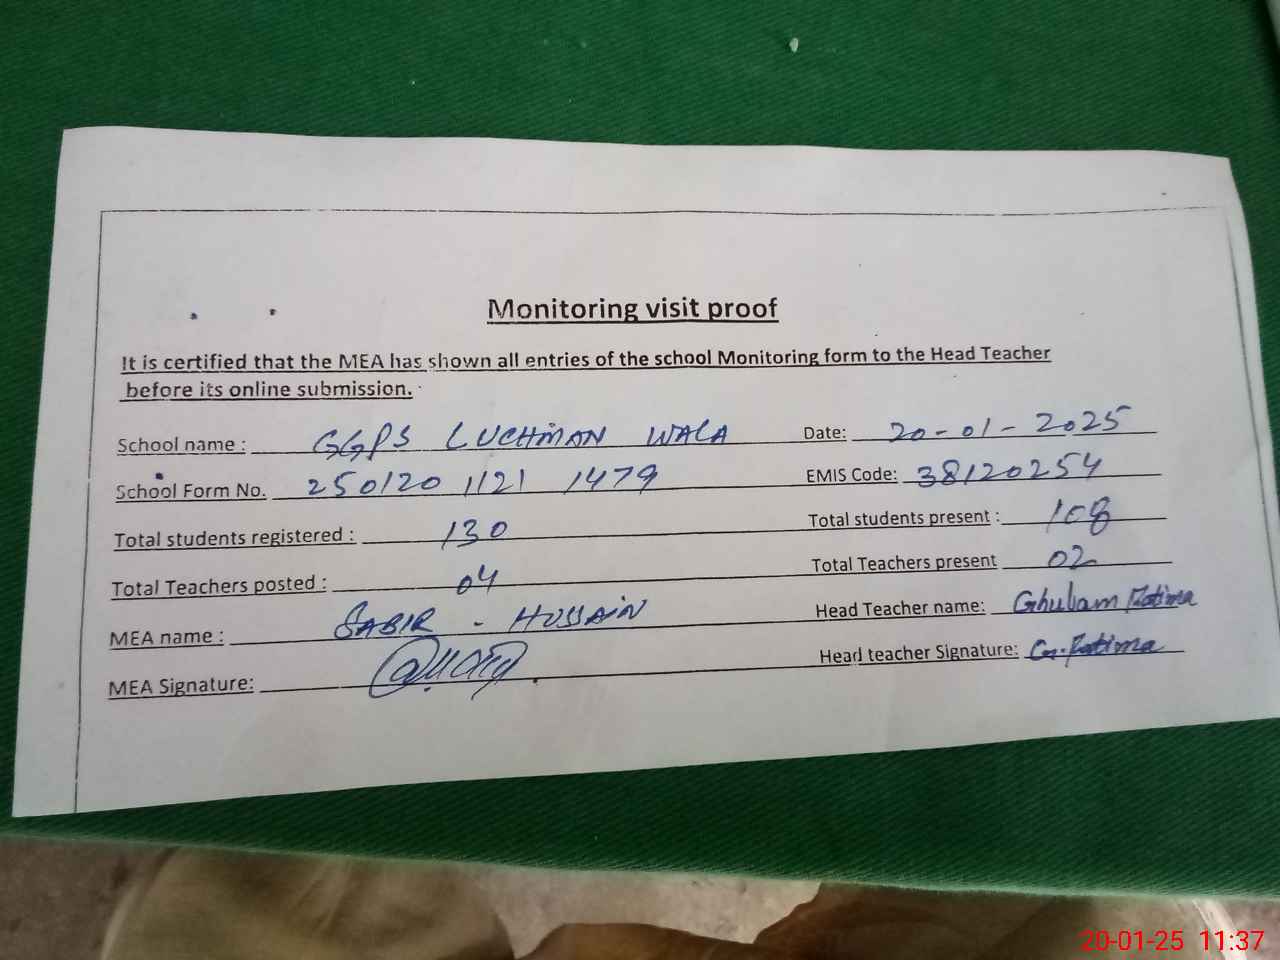 Monitoring visit proof
It is certified that the MEA has shown all entries of the school Monitoring form to the Head Teacher
before its online submission.
School name : GGPS LUCHMAN WALA Date: 20-01-2025
School Form No. 250120 1121 1479 EMIS Code: 38120254
Total students registered : 130 Total students present : 108
Total Teachers posted : 04 Total Teachers present 02
MEA name : SABIR - HUSSAIN Head Teacher name: Ghulam Fatima
MEA Signature: Head teacher Signature: G.Fatima
20-01-25 11:37